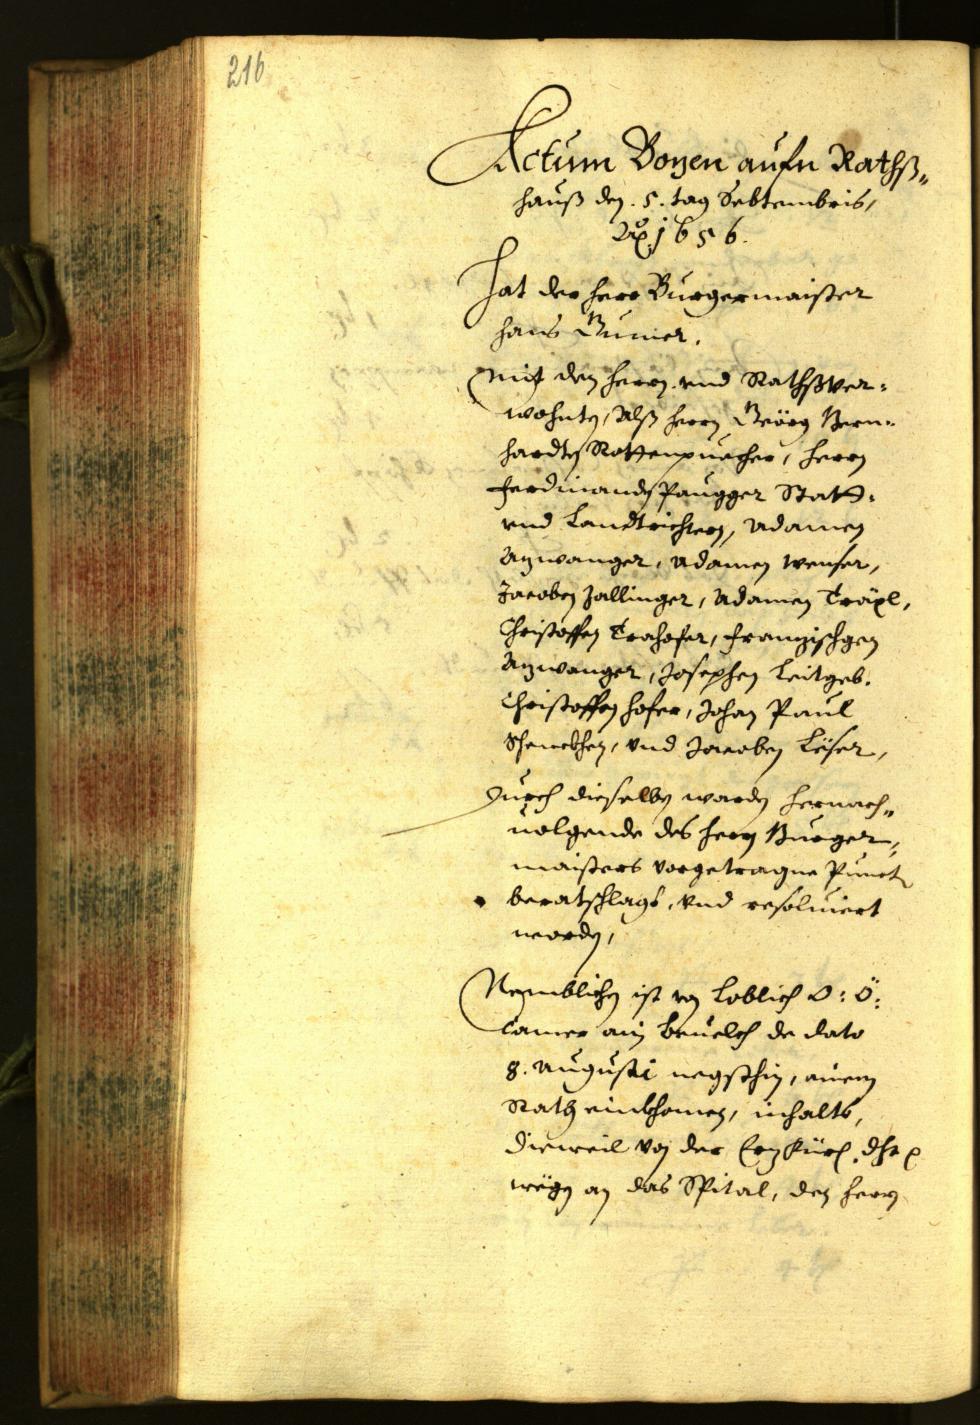 216
Actum Bozen aufn Rathß„
hauß den . 5. tag Septembris,
Ao 1656.
Hat der herr Burgermaister
Hans Gumer.
Mit den herrn und Rathßver=
wohnten, Alß herrn Geörg Bern=
hardten Rottenpuecher, herrn
Ferdinanden Paugger Statt=
und Landtrichtern, Adamen
Anwanger, Adamen Wenser,
Jacoben Zallinger, Adamen Träxl,
Christoffen Trahofer, Franzischgen
Anwanger, Josephen Leitgeb.
Christoffen Hofer, Johan Paul
Schenckhen, und Jacoben Lÿser,
Durch dieselben warden hernach„
uolgende des herrn Burger„
maisters vorgetragne Punct
beratschlagt, und resoluiert
worden,
Nemblichen ist von Loblich O: Ö:
Camer ain beuelch de dato
8. Augusti negsthin, ainem
Rath einkhomen, inhalts,
dieweil von der
wegen an das Spital, den herrn